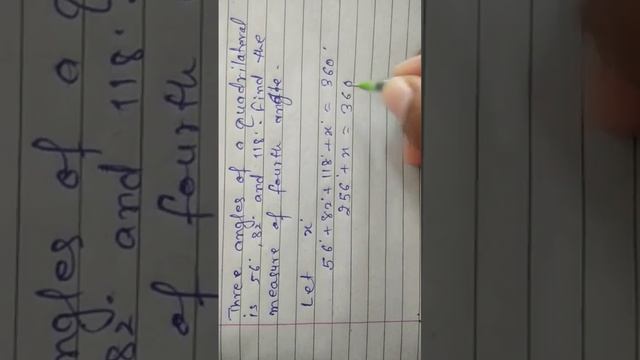 Three angles of a quadrilateral
is 56°, 82° and 118°. find the
measure of fourth angle.
Let x°
56° + 82° + 118° + x° = 360°
256° + x = 360
ngles of a q
82° and 118°.
of fourth